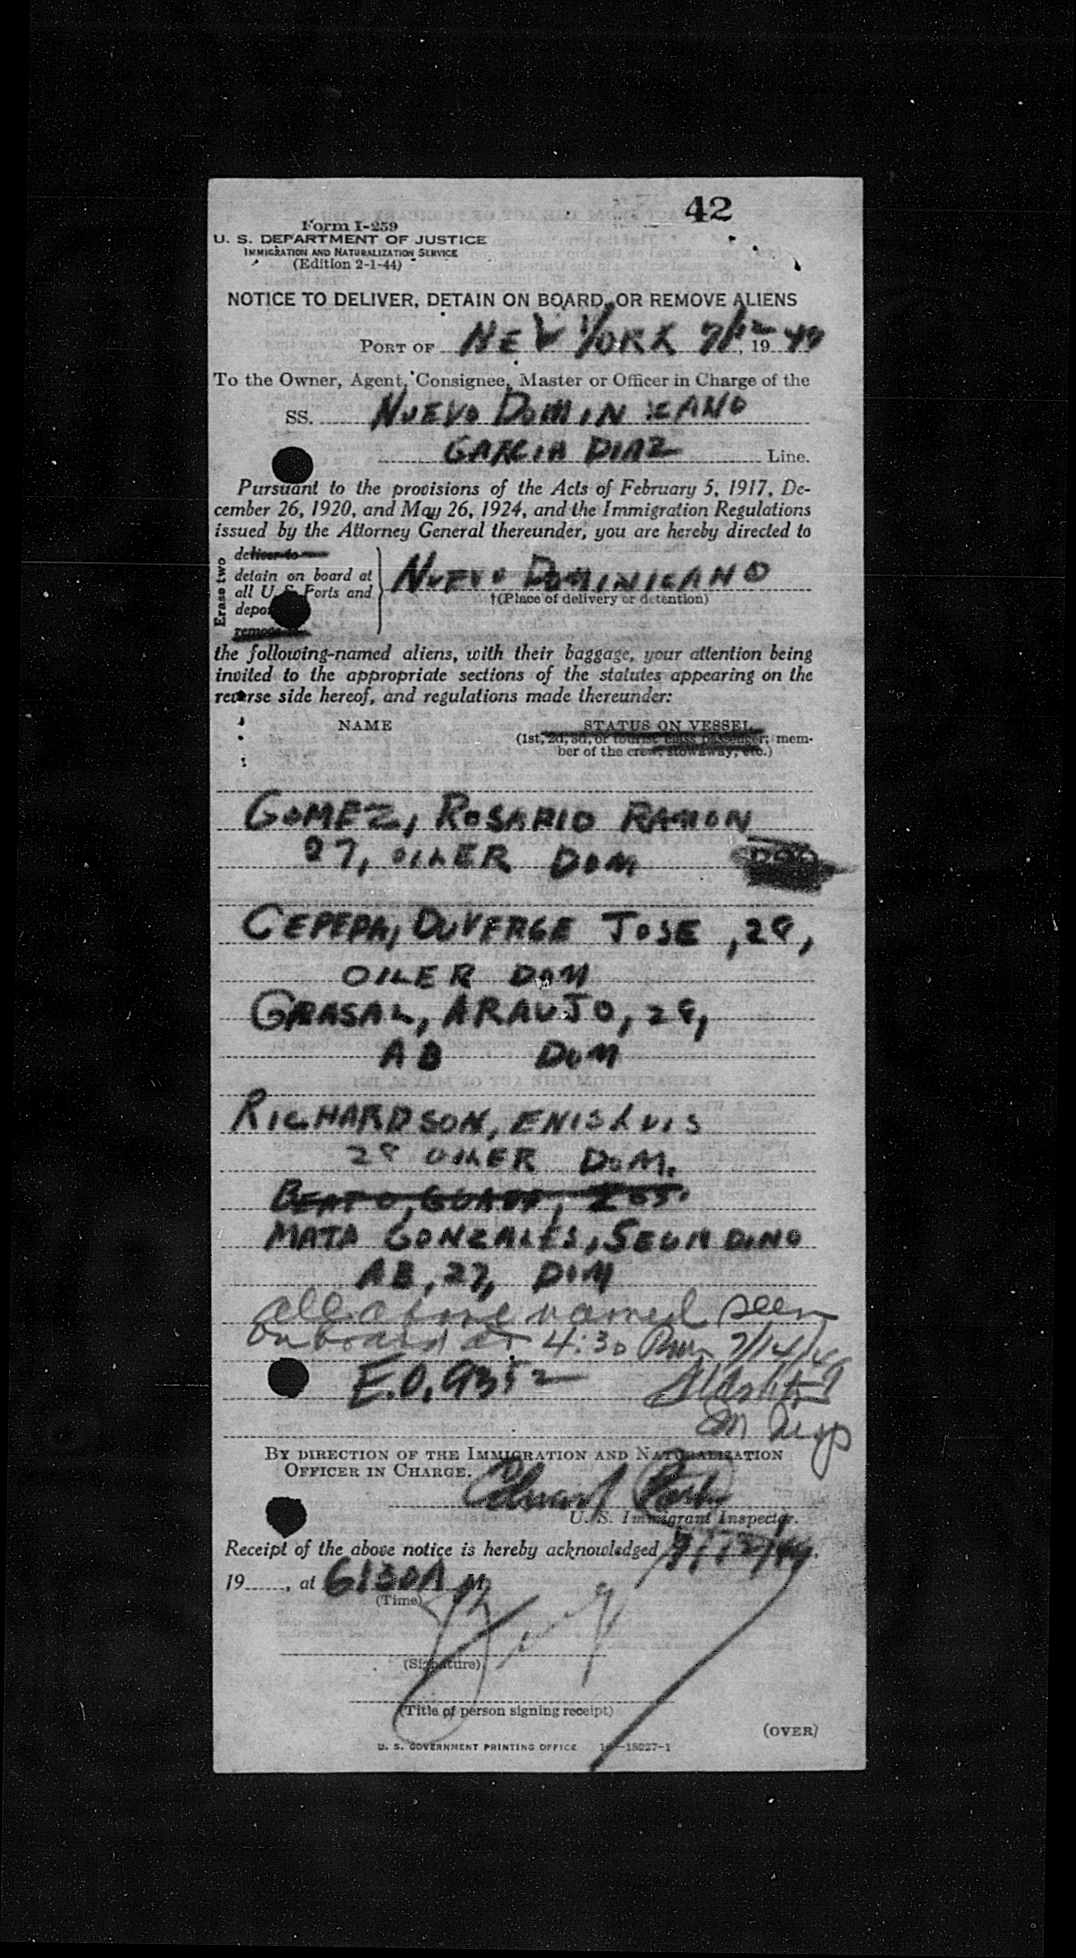 42
Form I-259
U. S. DEPARTMENT OF JUSTICE
IMMIGRATION AND NATURALIZATION SERVICE
(Edition 2-1-44)
NOTICE TO DELIVER, DETAIN ON BOARD, OR REMOVE ALIENS
PORT OF NEW YORK 7/12, 1949
To the Owner, Agent, Consignee, Master or Officer in Charge of the
SS. NUEVO DOMINICANO
GARCIA DIAZ Line.
Pursuant to the provisions of the Acts of February 5, 1917, De-
cember 26, 1920, and May 26, 1924, and the Immigration Regulations
issued by the Attorney General thereunder, you are hereby directed to
Erase two
deliver to
detain on board at
all U. S. Ports and
deport
remove
NUEVO DOMINICANO
†(Place of delivery or detention)
the following-named aliens, with their baggage, your attention being
invited to the appropriate sections of the statutes appearing on the
reverse side hereof, and regulations made thereunder:
NAME STATUS ON VESSEL
(1st, 2d, 3d, or tourist class passenger; mem-
ber of the crew, stowaway, etc.)
GOMEZ, ROSARIO RAMON
27, OILER DOM
CEPEPA, DUVERGE JOSE, 28,
OILER DOM
GRASAL, ARAUJO, 28,
AB DOM
RICHARDSON, ENISLUIS
28 OILER DOM.
MATA GONZALES, SEGUNDINO
AB, 27, DOM
all above named seen
on board at 4:30 Pm 7/14/49
E.O. 9352
BY DIRECTION OF THE IMMIGRATION AND NATURALIZATION
OFFICER IN CHARGE.
Edward
U. S. Immigrant Inspector.
Receipt of the above notice is hereby acknowledged 7/12/49,
19, at 6:30A M
(Time)
(Signature)
(Title of person signing receipt)
(OVER)
U. S. GOVERNMENT PRINTING OFFICE 16-18227-1